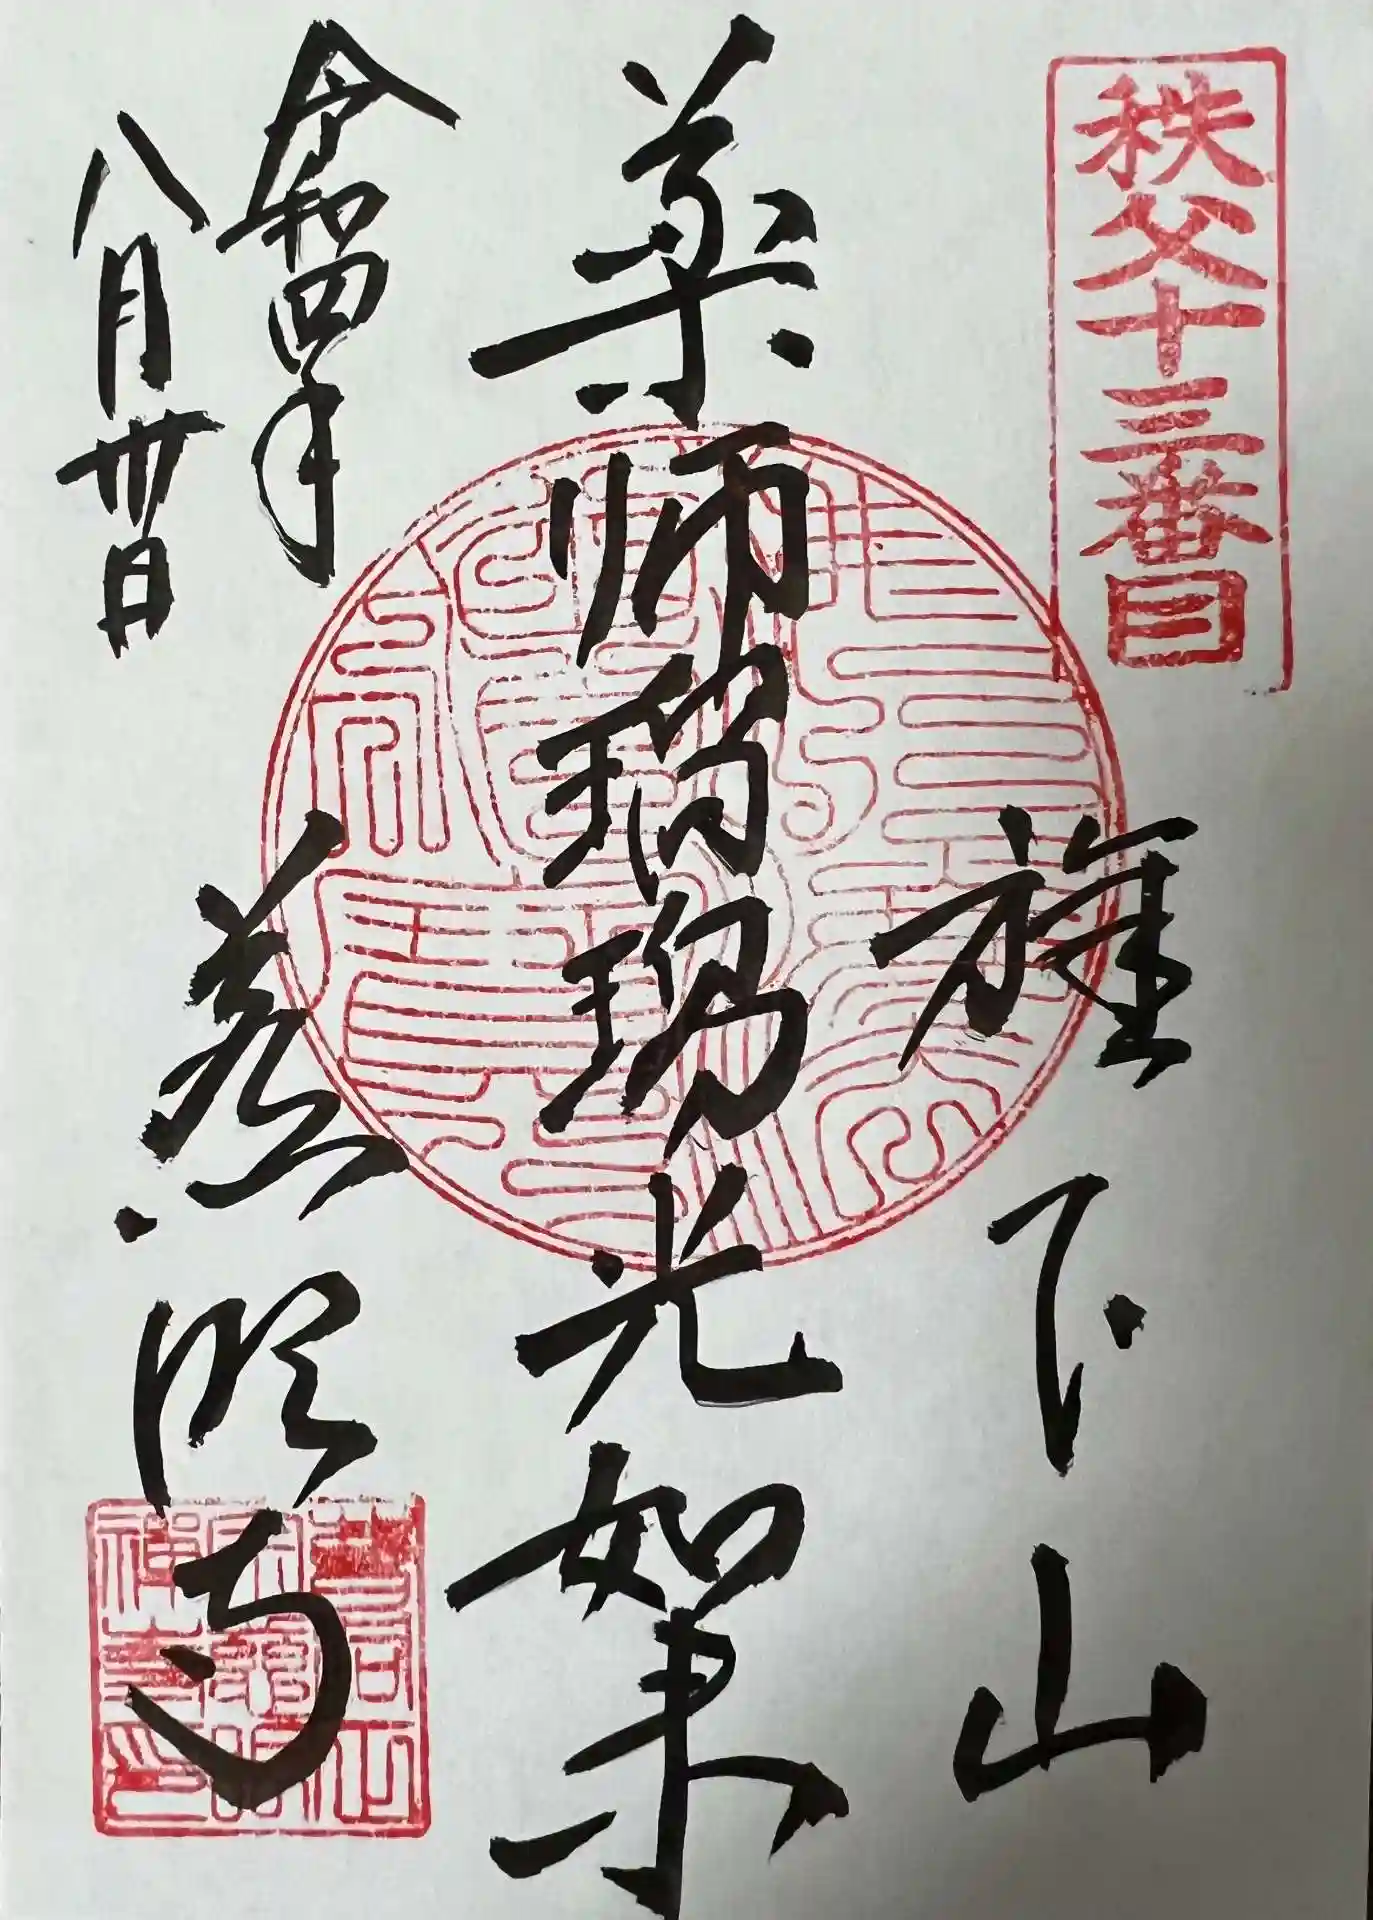 秩父十三番目
旗下山
薬師瑠璃光如来
令和四年
八月卅日
慈眼寺